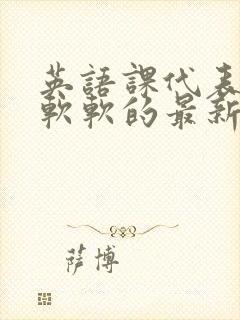 英語課代表
軟軟的最新
薩博